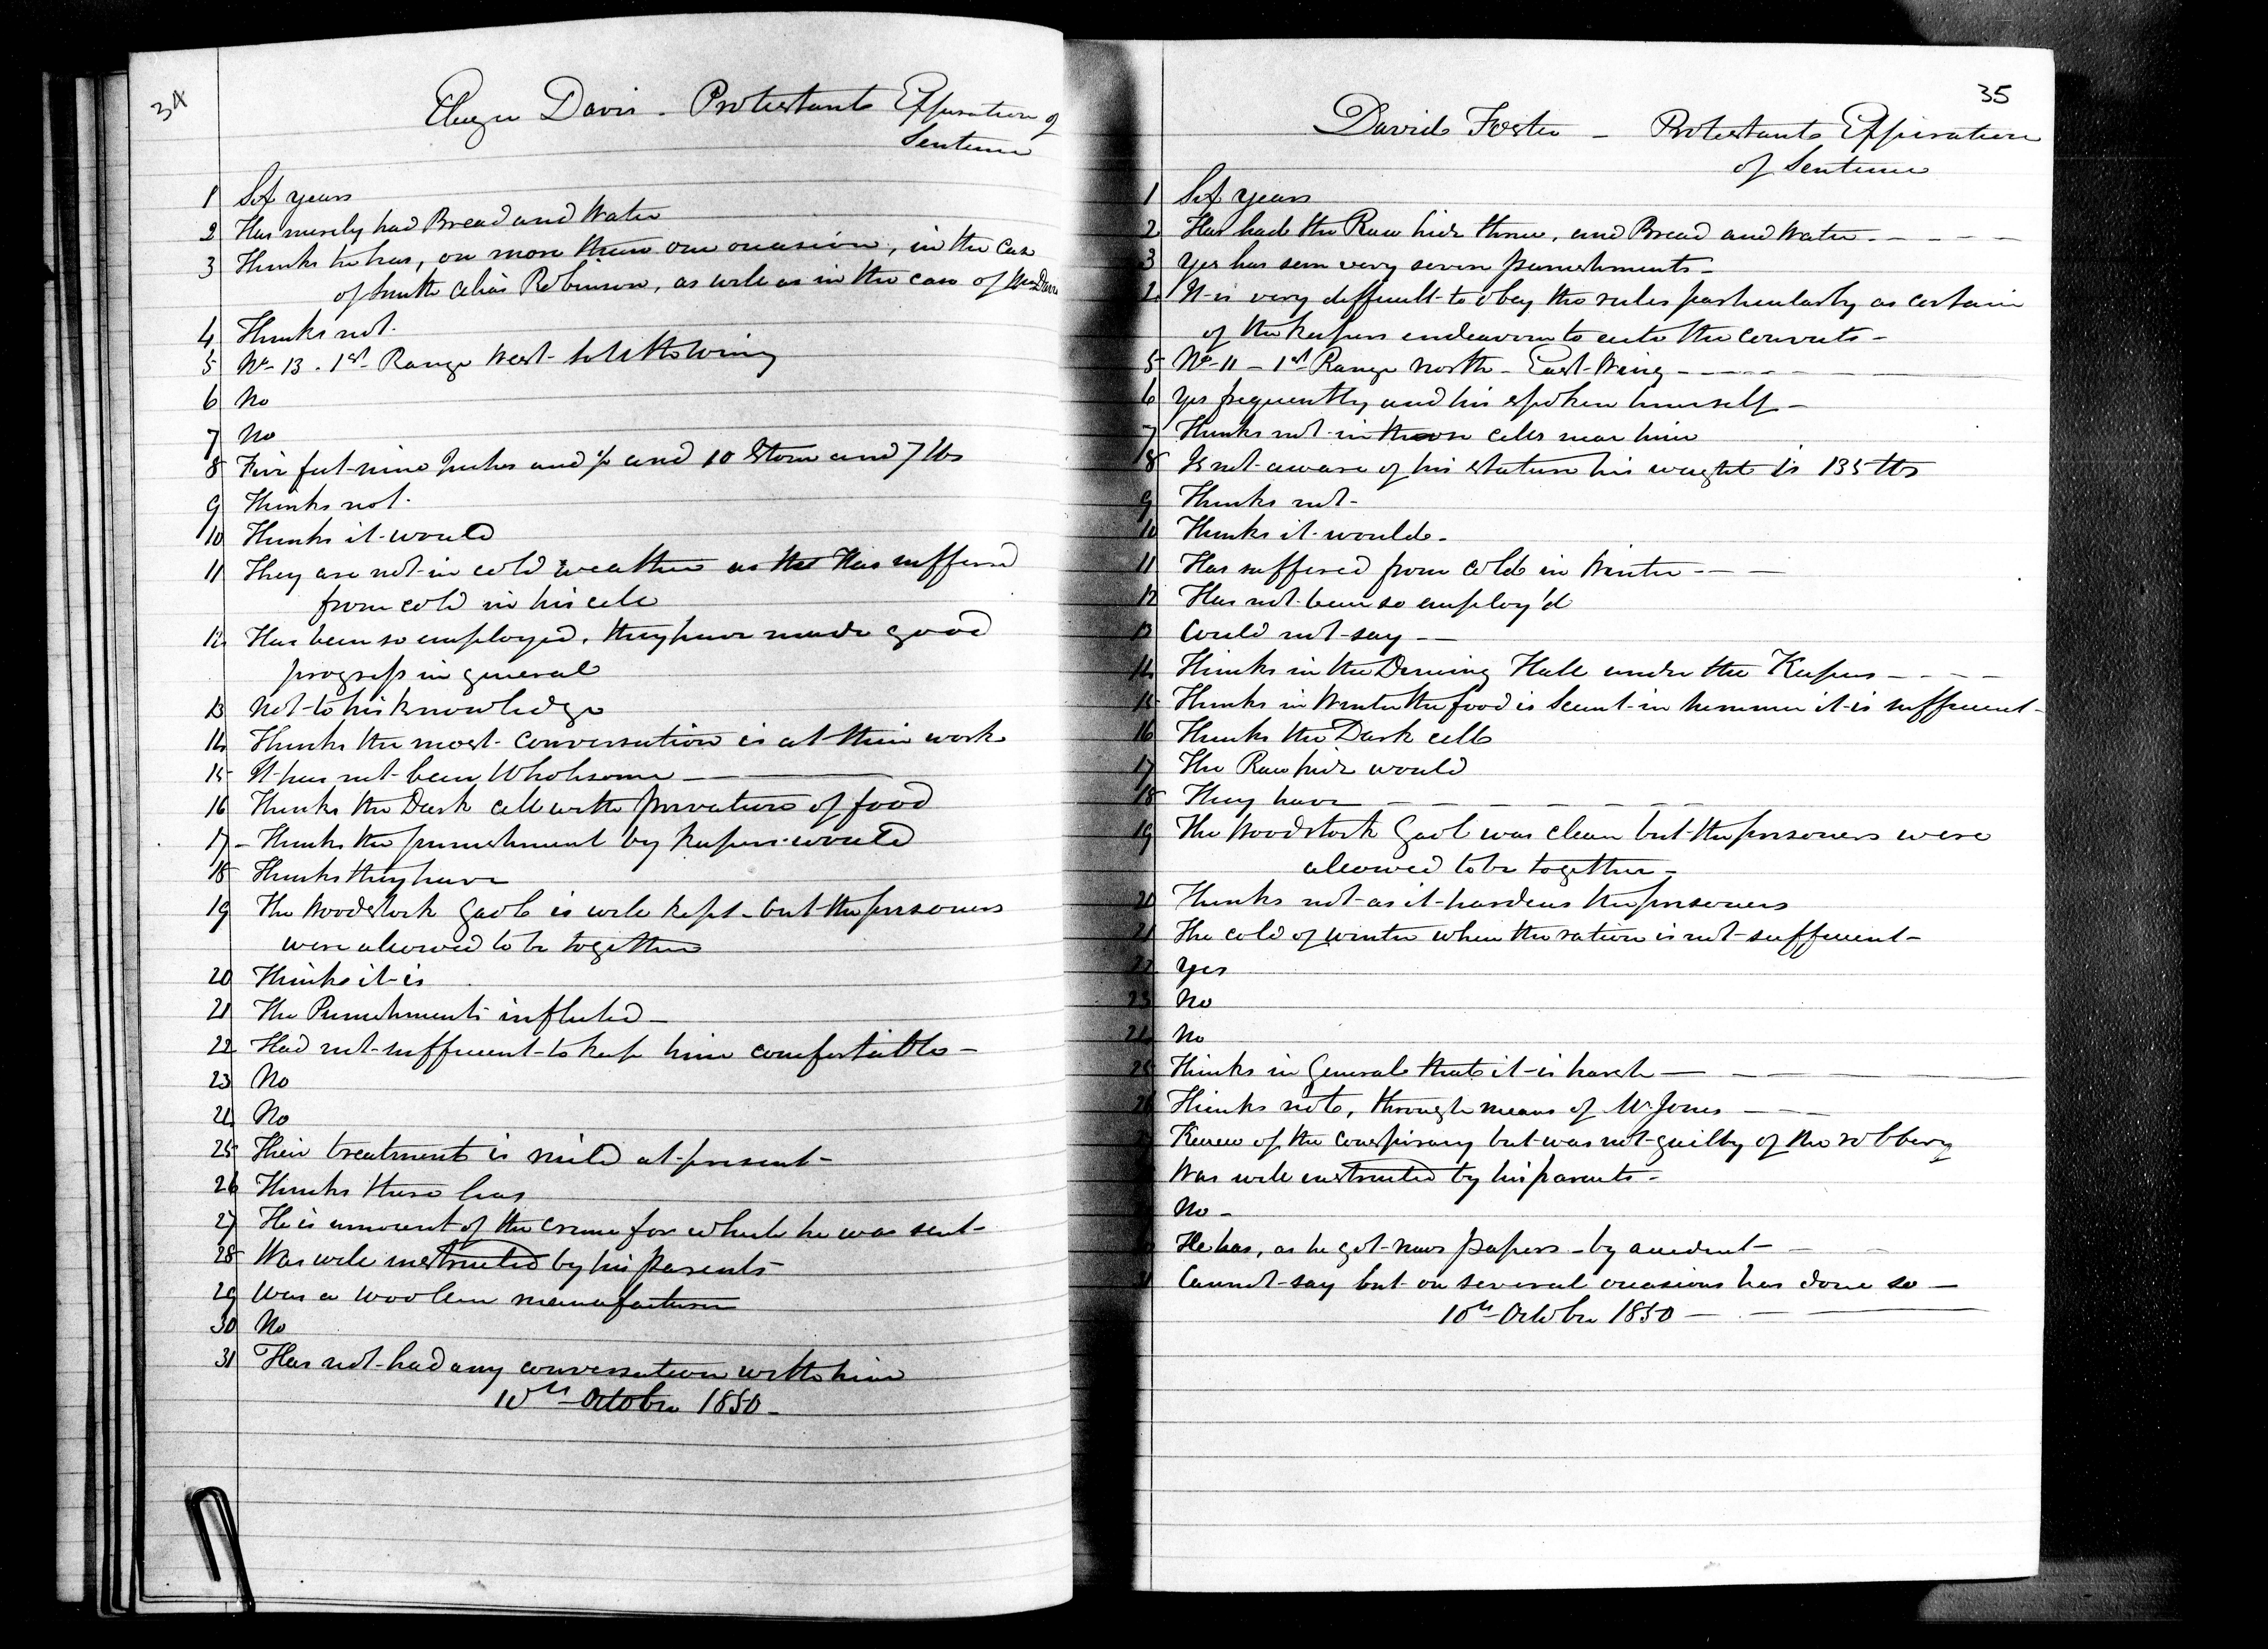 34
Davis - Protestant Expiration of
Sentence
1 Six years
2 Has merely had Bread and Water
3 Thinks he has, on more than one occasion, in the case
of Smith alias Robinson, as well as in the case of
4 Thinks not.
5 No 13. 1st Range West South Wing
6 No
7 No
8 Five feet nine Inches and ½ and 10 Stone and 7 lbs
9 Thinks not.
10 Thinks it would
11 They are not in cold weather as Has suffered
from cold in his cell
12 Has been so employed, they have made good
progress in general
13 Not to his knowledge
14 Thinks the most conversation is at their work
15 It has not been Wholesome
16 Thinks the Dark cell with privation of food
17 Thinks the punishment by Keepers would
18 Thinks they have
19 The Woodstock Gaol is well kept but the prisoners
were allowed to be together
20 Thinks it is
21 The Punishments inflicted
22 Had not sufficient to keep him comfortable
23 No
24 No
25 Their treatment is mild at present
26 Thinks there has
27 He is innocent of the crime for which he was sent
28 Was well instructed by his parents
29 Was a woolen manufacturer
30 No
31 Has not had any conversation with him
10th October 1850
35
David Foster - Protestant Expiration
of Sentence
1 Six years
2 Has had the Raw hide thrice, and Bread and Water
3 Yes has seen very severe punishments
4 It is very difficult to obey the rules particularly as certain
of the keepers endeavour to the convicts
5 No 11 - 1st Range North - East Wing
6 Yes frequently and his spoken himself
7 Thinks not in those cells near him
8 Is not aware of his stature his weight is 135 lbs
9 Thinks not
10 Thinks it would.
11 Has suffered from cold in Winter
12 Has not been so employ'd
13 Could not say
14 Thinks in the Dinning Hall under the Keepers
15 Thinks in Winter the food is Scant in summer it is sufficient
16 Thinks the Dark cell
17 The Raw hide would
18 They have
19 The Woodstock Gaol was clean but the prisoners were
allowed to be together
20 Thinks not as it hardens the prisoners
21 The cold of winter when the ration is not sufficient
22 Yes
23 No
24 No
25 Thinks in General that it is harsh
26 Thinks not, through means of Mr Jones
Knew of the conspiracy but was not guilty of the robbery
Was well instructed by his parents
No
He has, as he got news papers by accident
31 Cannot say but on several occasions has done so
10th October 1850